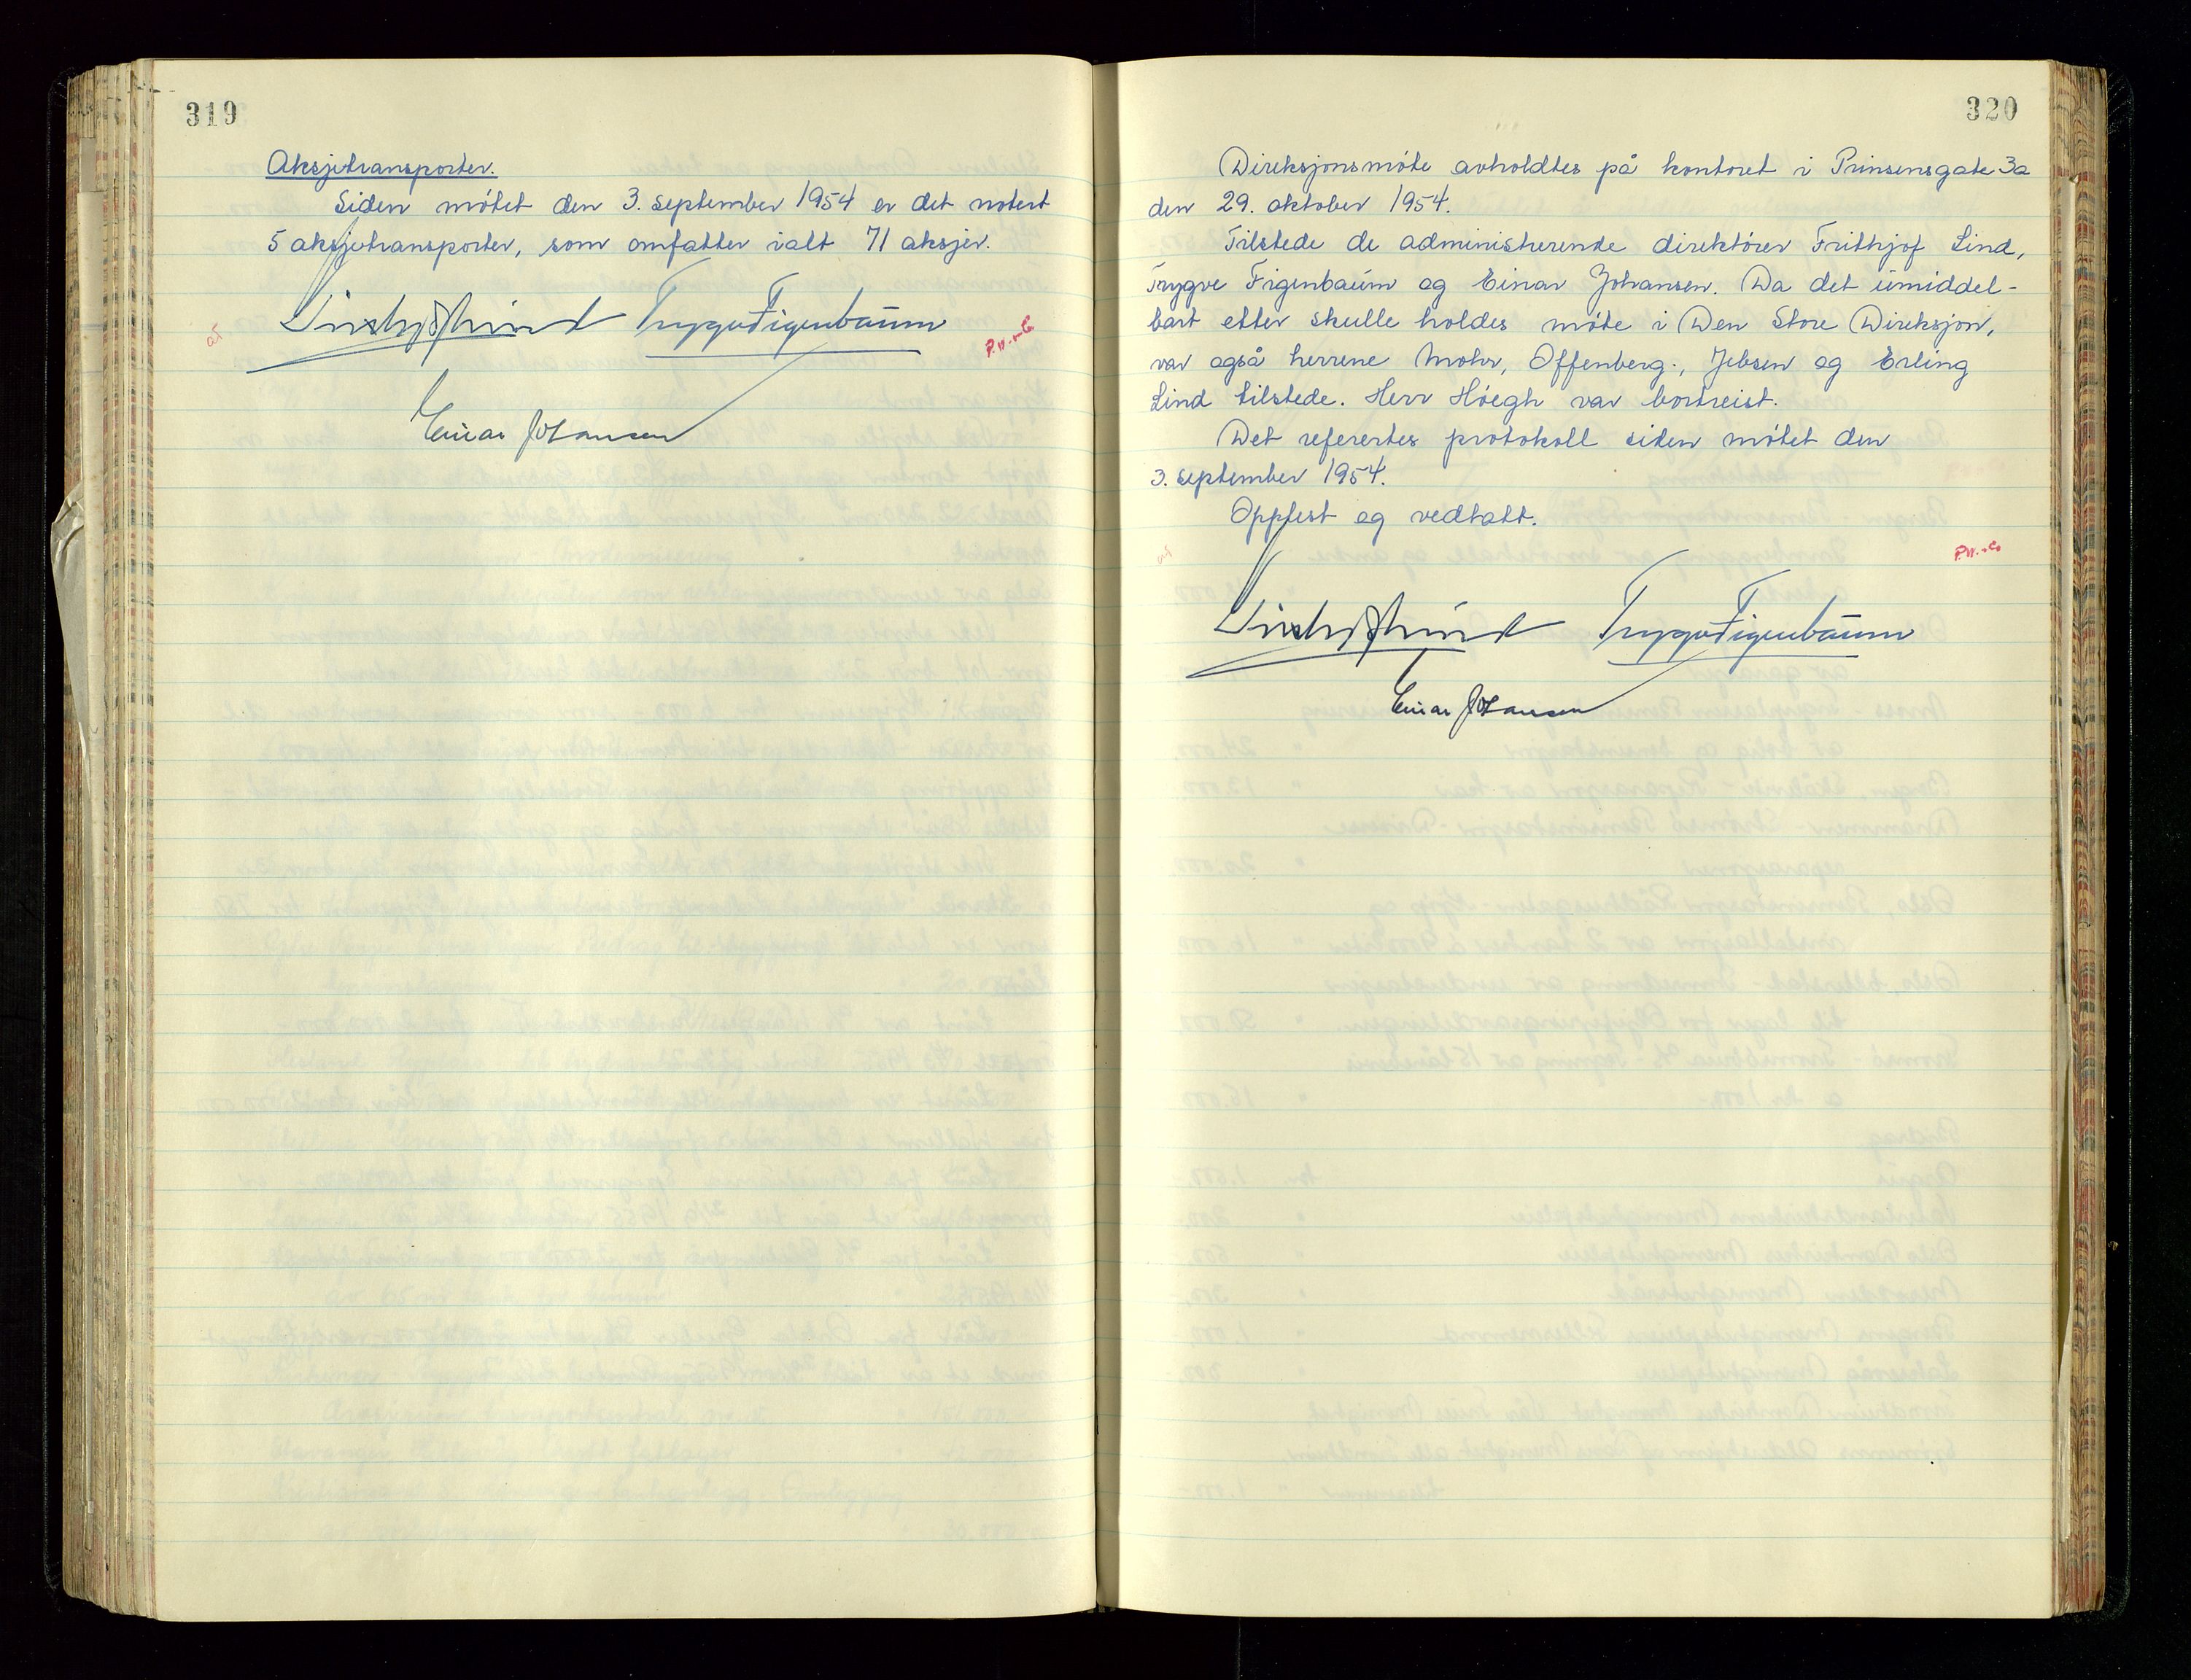 319
Aksjetransporter.
Siden møtet den 3. september 1954 er det notert
5 aksjetransporter, som omfatter ialt 71 aksjer.
Trygve Figenbaum
Einar Johansen
320
Direksjonsmøte avholdtes på kontoret i Prinsensgate 3a
den 29. oktober 1954.
Tilstede de administrerende direktører Frithjof Lind,
Trygve Figenbaum og Einar Johansen. Da det umiddel-
bart etter skulle holdes møte i Den Store Direksjon,
var også herrene Mohr, Offenberg, Jebsen og Erling
Lind tilstede. Herr Høegh var bortreist.
Det refertes protokoll siden møtet den
3. september 1954.
Opplest og vedtatt.
Trygve Figenbaum
Einar Johansen